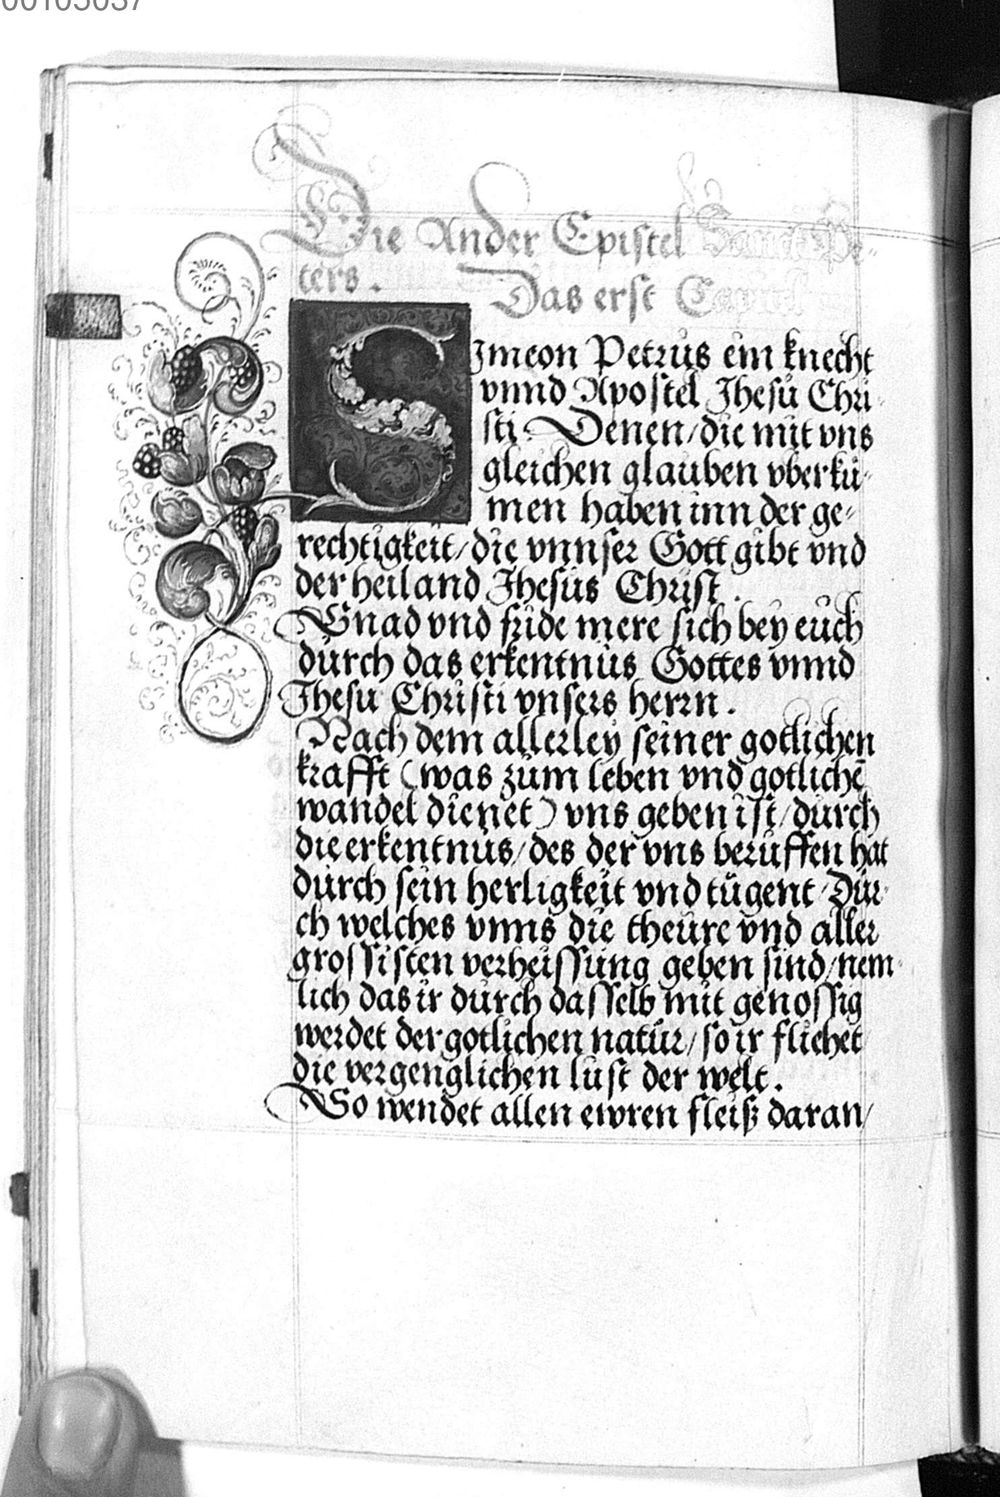 00105037
Die Ander Epistel Sanct Pe-
ters. Das erst Capitel
SImeon Petrus ein knecht
vnnd Apostel Jhesu Chri-
sti. Denen/die mit vns
gleichen glauben vberku-
men haben inn der ge-
rechtigkeit/die vnnser Gott gibt vnd
der heiland Jhesus Christ.
Gnad vnd fride mere sich bey euch
durch das erkentnus Gottes vnnd
Jhesu Christi vnsers herrn.
Nach dem allerley seiner gotlichen
krafft (was zum leben vnd gotlichē
wandel dienet) vns geben ist/durch
die erkentnus/des der vns beruffen hat
durch sein herligkeit vnd tugent/Dur-
ch welches vnns die theure vnd aller
grossisten verheissung geben sind/nem-
lich das ir durch dasselb mit genossig
werdet der gotlichen natur/so ir fliehet
die vergenglichen lust der welt.
So wendet allen ewren fleiß daran/